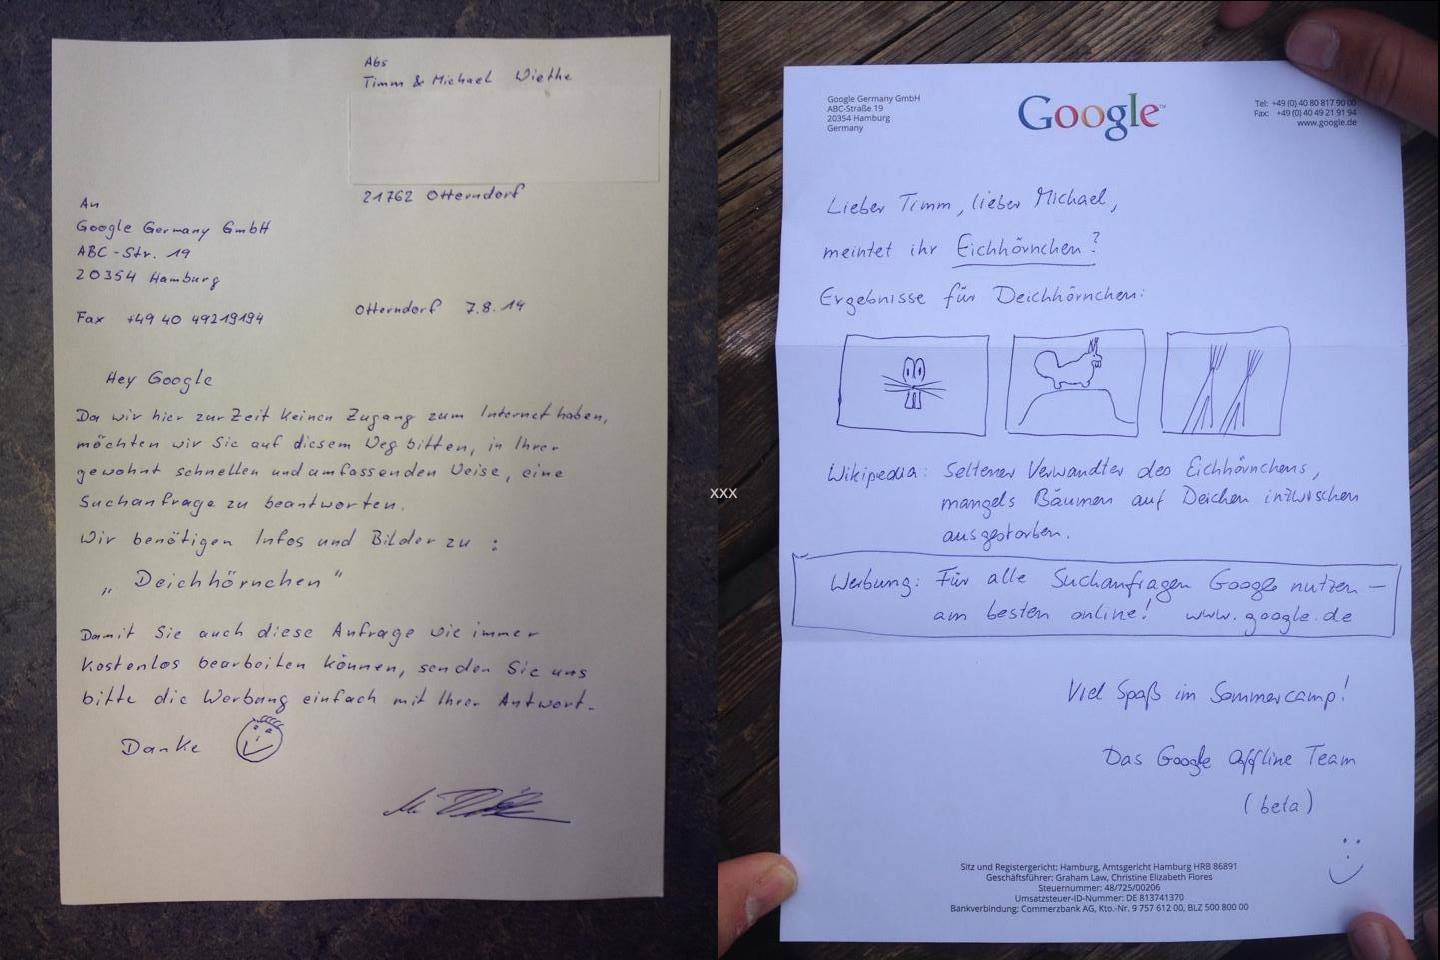 Abs
Timm & Michael Wiethe
21762 Otterndorf
An
Google Germany GmbH
ABC-Str. 19
20354 Hamburg
Fax +49 40 49219194
Otterndorf 7.8.14
Hey Google
Da wir hier zur Zeit keinen Zugang zum Internet haben,
möchten wir Sie auf diesem Weg bitten, in Ihrer
gewohnt schnellen und umfassenden Weise, eine
Suchanfrage zu beantworten.
Wir benötigen Infos und Bilder zu :
„ Deichhörnchen “
Damit Sie auch diese Anfrage wie immer
kostenlos bearbeiten können, senden Sie uns
bitte die Werbung einfach mit Ihrer Antwort.
Danke
xxx
Google Germany GmbH
ABC-Straße 19
20354 Hamburg
Germany
Google™
Tel: +49 (0) 40 80 817 90 00
Fax: +49 (0) 40 49 21 91 94
www.google.de
Lieber Timm, lieber Michael,
meintet ihr Eichhörnchen?
Ergebnisse für Deichhörnchen:
Wikipedia: Seltener Verwandter des Eichhörnchens,
mangels Bäumen auf Deichen inzwischen
ausgestorben.
Werbung: Für alle Suchanfragen Google nutzen –
am besten online! www.google.de
Viel Spaß im Sommercamp!
Das Google Offline Team
(beta)
:)
Sitz und Registergericht: Hamburg, Amtsgericht Hamburg HRB 86891
Geschäftsführer: Graham Law, Christine Elizabeth Flores
Steuernummer: 48/725/00206
Umsatzsteuer-ID-Nummer: DE 813741370
Bankverbindung: Commerzbank AG, Kto.-Nr. 9 757 612 00, BLZ 500 800 00